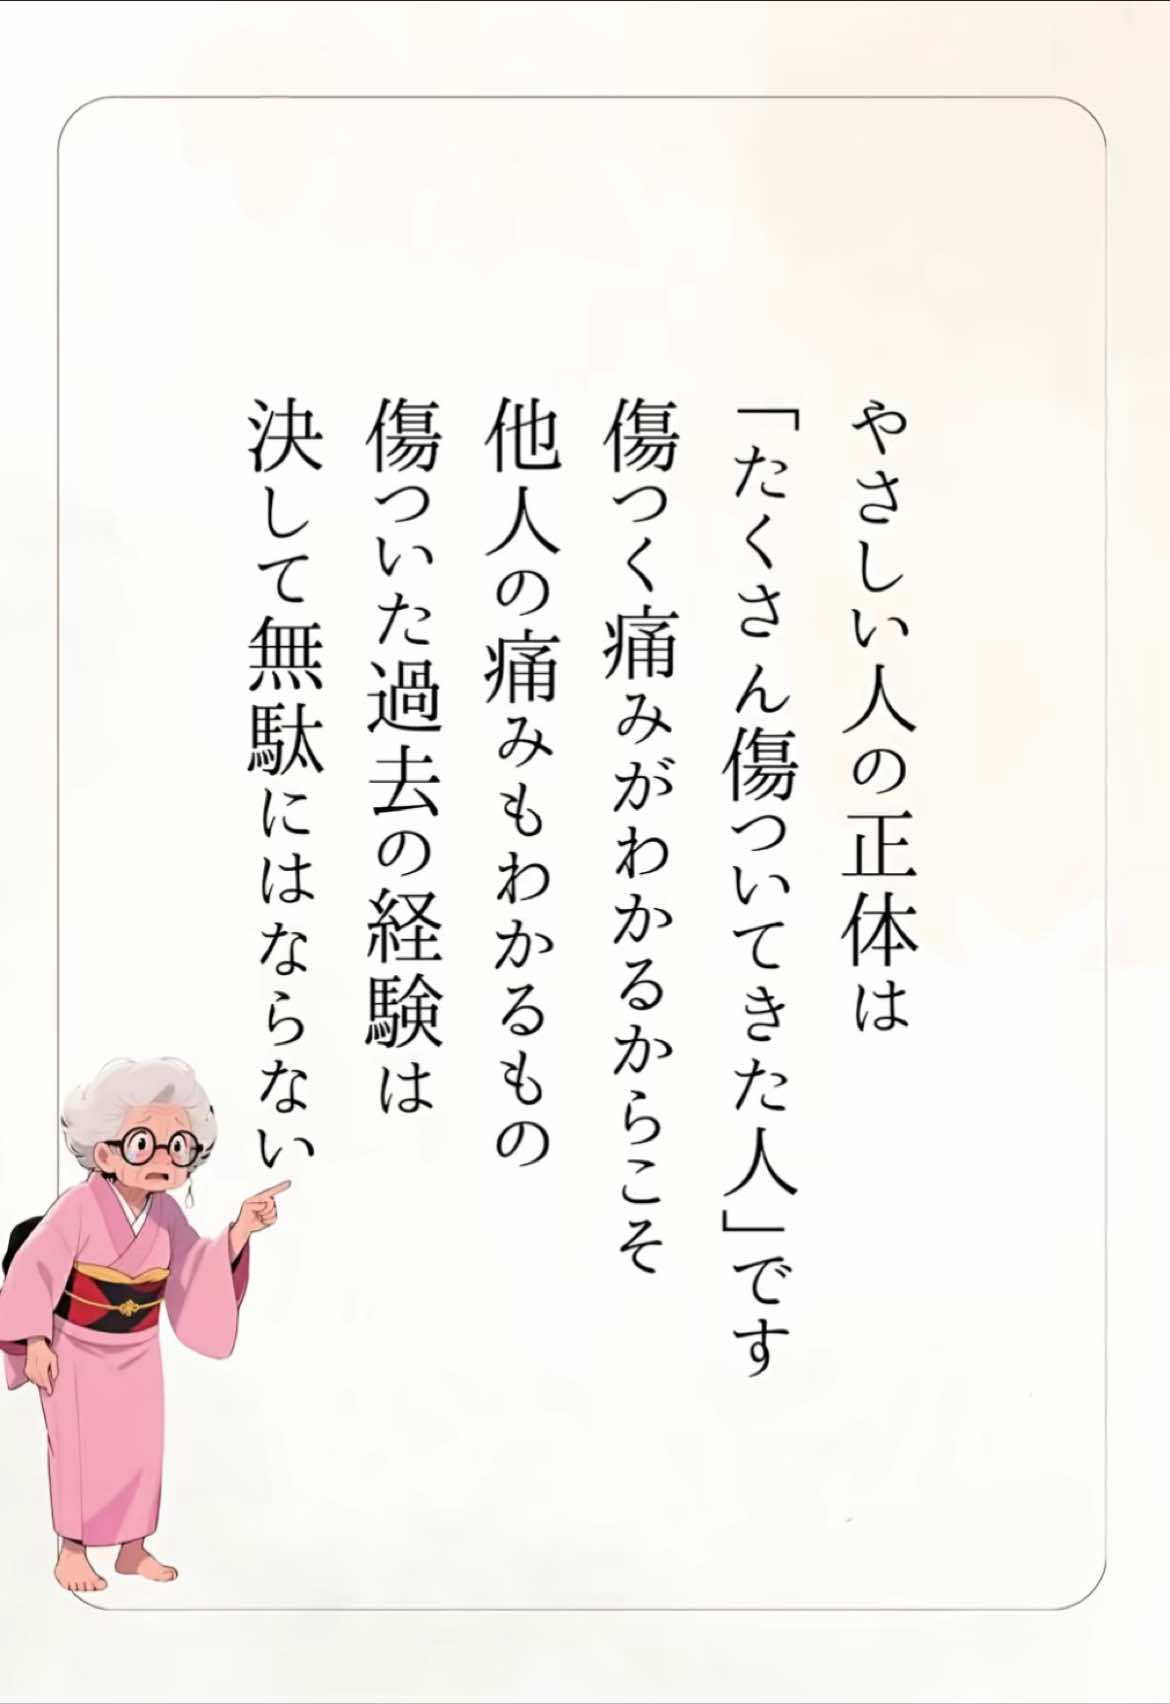 やさしい人の正体は
「たくさん傷ついてきた人」です
傷つく痛みがわかるからこそ
他人の痛みもわかるもの
傷ついた過去の経験は
決して無駄にはならない